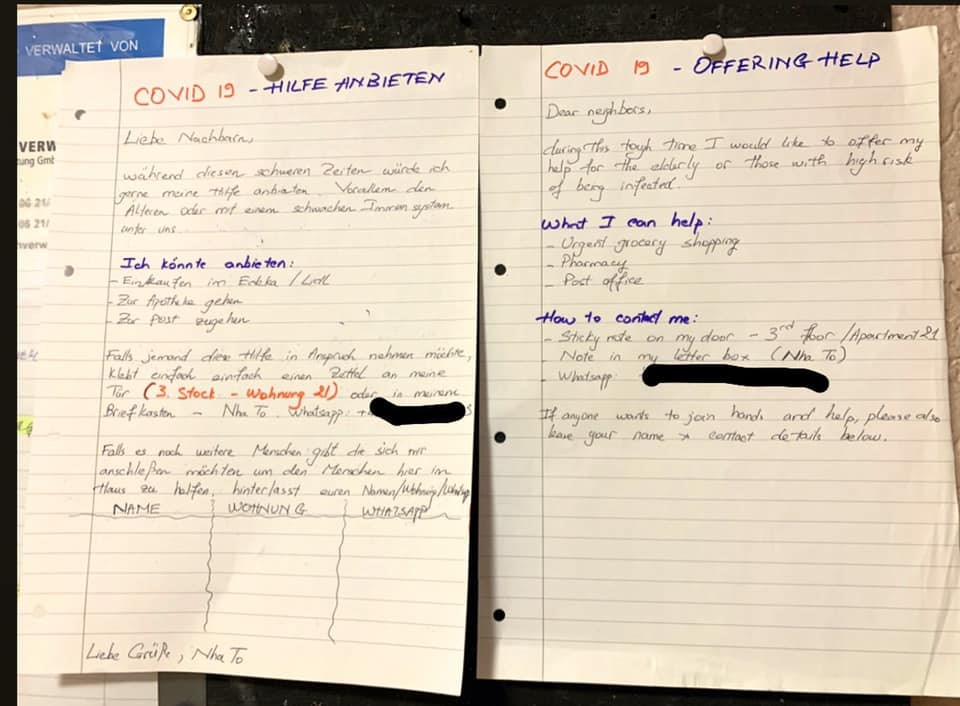 VERWALTET VON
VERW
tung Gmb
06 21/
06 21/
verw
COVID 19 - HILFE ANBIETEN
Liebe Nachbarn,
während diesen schweren Zeiten würde ich
gerne meine Hilfe anbieten. Vorallem den
Älteren oder mit einem schwachen Immunsystem
unter uns.
Ich könnte anbieten:
- Einkaufen im Edeka / Lidl
- Zur Apotheke gehen
- Zur Post zugehen
Falls jemand diese Hilfe in Anspruch nehmen möchte,
klebt einfach einfach einen Zettel an meine
Tür (3. Stock - Wohnung 21) oder in meinem
Briefkasten - Nha To. Whatsapp: +
Falls es noch weitere Menschen gibt die sich mir
anschließen möchten um den Menschen hier im
Haus zu helfen, hinterlasst euren Namen/Wohnung/Whatsapp
NAME WOHNUNG WHATSAPP
Liebe Grüße, Nha To
COVID 19 - OFFERING HELP
Dear neighbors,
during this tough time I would like to offer my
help for the elderly or those with high risk
of being infected.
What I can help:
- Urgent grocery shopping
- Pharmacy
- Post office
How to contact me:
- Sticky note on my door - 3rd floor /Apartment 21
- Note in my letter box (Nha To)
- Whatsapp:
If anyone wants to join hands and help, please also
leave your name + contact details below.